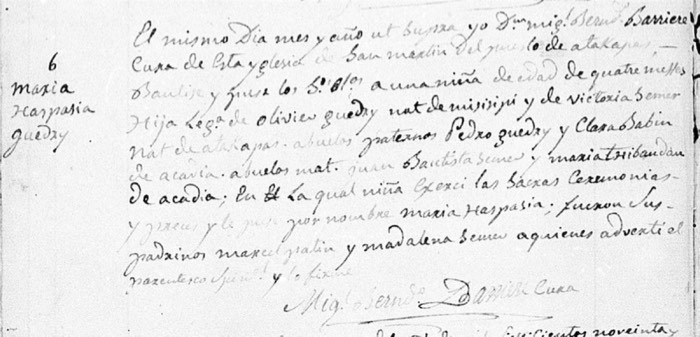 6
Maria
Haspasia
guedry
El mismo Dia mes y año ut supra yo Dn mig.l Bernd.o Barriere
Cura de Esta yglesia de San martin Del puesto de atakapas,
Bautise y puse los Stos Olos a una niña de edad de quatre messes
Hija Lega. de olivier guedry nat de misisipi y de victoria Semer
nat de atakapas. abuelos paternos Pedro guedry y Clara Babin
de acadia. abuelos mat. juan Bautista Semer y maria thibaudau
de acadia; En La qual niña Exerci las Sacras Ceremonias
y preces y le puse por nombre maria Haspasia; fueron Sus
padrinos marcel patin y madalena Semer aquienes adverti el
parentesco Spirl. y lo firme
Mig.l Bernd.o Barriere Cura
noveinta y